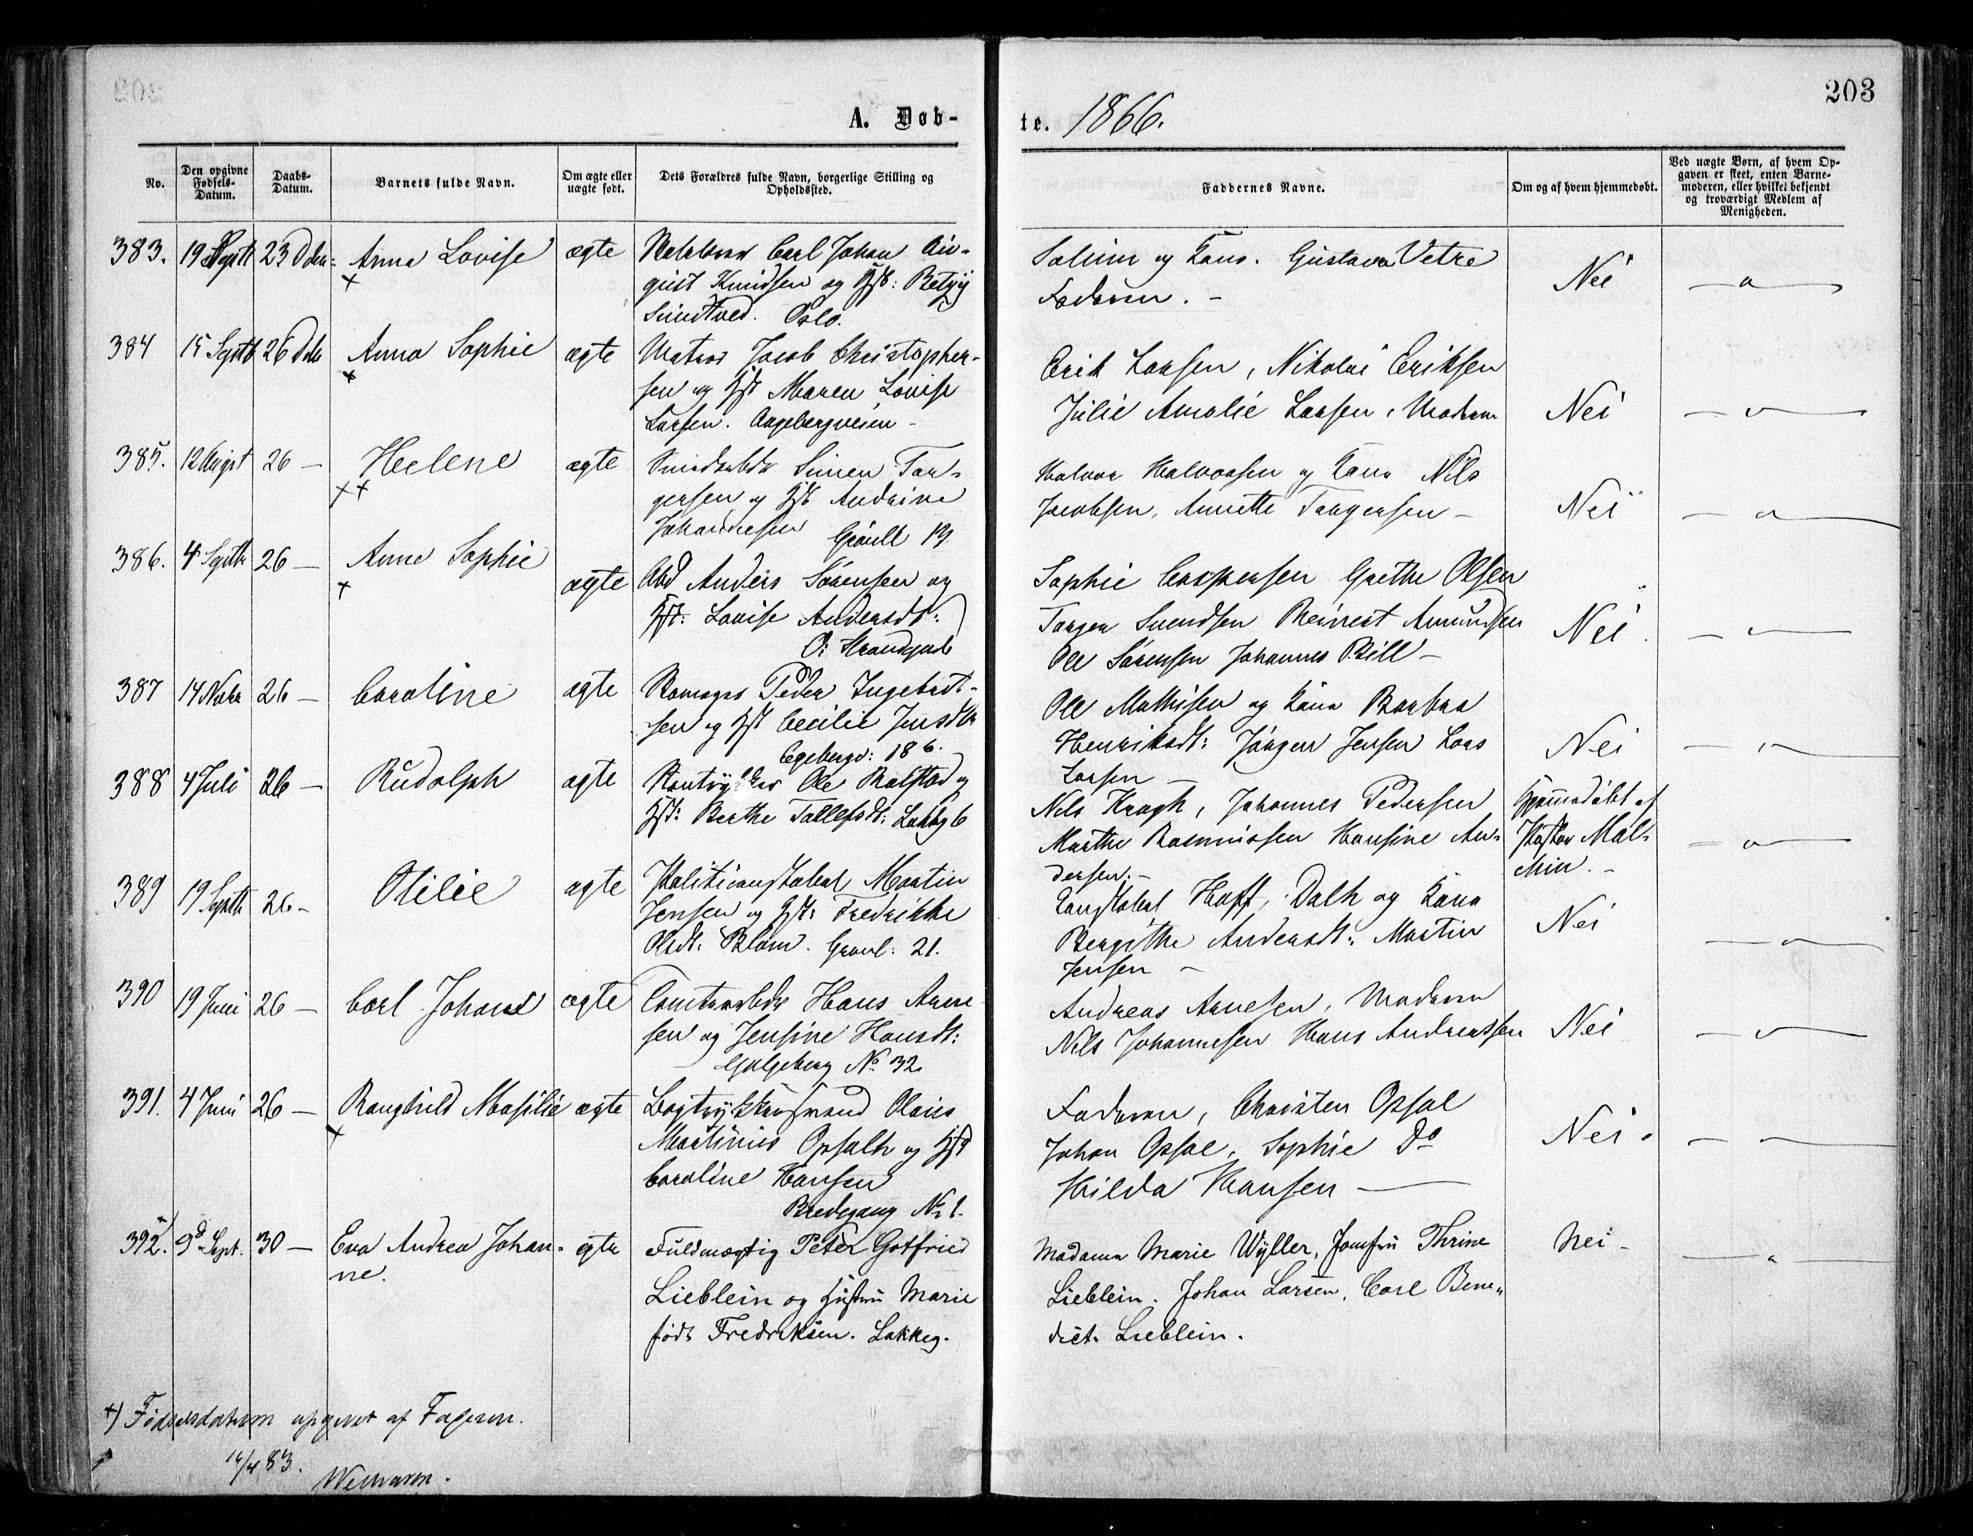 203
A. Døb-
te. 1866.
No.
Den opgivne Fødsels-Datum.
Daabs-Datum.
Barnets fulde Navn.
Om ægte eller uægte født.
Dets Forældres fulde Navn, borgerlige Stilling og Opholdssted.
Faddernes Navne.
Om og af hvem hjemmedøbt.
Ved uægte Børn, af hvem Opgaven er skeet, enten Barnemoderen, eller hvilket bekjendt og troværdigt Medlem af Menigheden.
383. 19 Septb 23 Anna Lovise ægte Carl Johan Au-
gust Knudsen og Hst: Betzy
Sundtved. Oslo.
og Kone. Gustava Vetre
Faderen. - Nei
384 15 Septb 26 Anna Sophie ægte Matros Jacob Christopher-
sen og Hst Maren Lovise
Larsen. Aagebergveien -
Erik Larsen, Nikolai Eriksen
Julie Amalie Larsen, Moderen Nei
385. 12 Augst 26 - Helene ægte Simen Tor-
gersen og Hst Andrine
Johannesen Grønl 19
Halvor Halvorsen og Kone Nils
Jacobsen, Annette Torgersen - Nei
386. 4 Septb 26 - Anne Sophie ægte Abd Anders Sørensen og
Hst: Lovise Andersdt:
O: Strandgade
Sophie Caspersen Grethe Olsen
Torger Svendsen Bernest Amundsen
Ole Sørensen Johannes Bill - Nei
387 14 26 - Caroline ægte Peder Ingebrdt-
sen og Hst Cecilie Jensdtr
Egebergv: 186.
Ole Mathisen og Kone Barbra
Henriksdt: Jørgen Jensen Lars
Larsen - Nei
388 4 Juli 26 - Rudolph ægte Ole Rolstad og
Hst: Berthe Tollefsdt: Lakkg 6
Nils Krogh, Johannes Pedersen
Marthe Rasmussen Hansine An-
dersen. -
Hjemmedøbt af
Pastor Mal-
chin. -
389 19 Septb 26 - Otilie ægte Politiconstabel Martin
Jensen og Hst: Fredrikke
Olsdt: Blom. Grønl: 21.
Constabel Hoff, Dalh og Kone
Bergithe Andersdt: Martin
Jensen - Nei
390 19 Juni 26 - Carl Johan ægte Hans Arne-
sen og Jensine Hansdt:
Galgeberg No 32.
Andreas Arnesen, Moderen
Nils Johannesen Hans Andreassen Nei
391. 4 Juni 26 - Ranghild Masilie ægte Bogtrykkersvend Olaus
Martinius Opsalh og Hst
Caroline Hansen
Bredegang No 1.
Faderen, Christen Opsal
Johan Opsal, Sophie Do
Hilda Hansen - Nei.
392. +) 9d Sept. 30 - Eva Andrea Johan-
ne. ægte Fuldmægtig Peter Gotfried
Lieblein og Hustru Marie
født Fredriksen. Lakkeg.
Madame Marie Wyller, Jomfru Thrine
Lieblein. Johan Larsen, Carl Bene-
dict Lieblein. Nei -
+) Fødselsdatum opgivet af Faderen.
16/4 83.